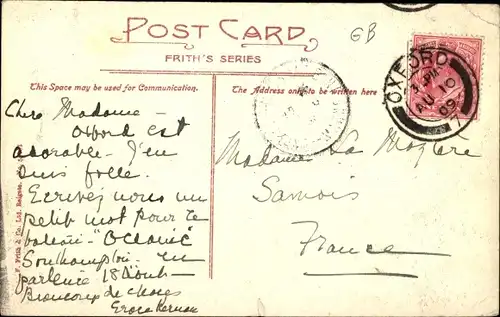 POST CARD
GB
FRITH'S SERIES
This Space may be used for Communication.
The Address only to be written here
OXFORD
3 PM
AU 10
09
7
Chère Madame -
Oxford est
adorable - J'en
suis folle.
Ecrivez nous un
petit mot pour le
bateau - "Oceanic"
Southampton - en
partence 18 Août -
Beaucoup de choses
Madame La
Samois
France
F. Frith & Co. Ltd. Reigate